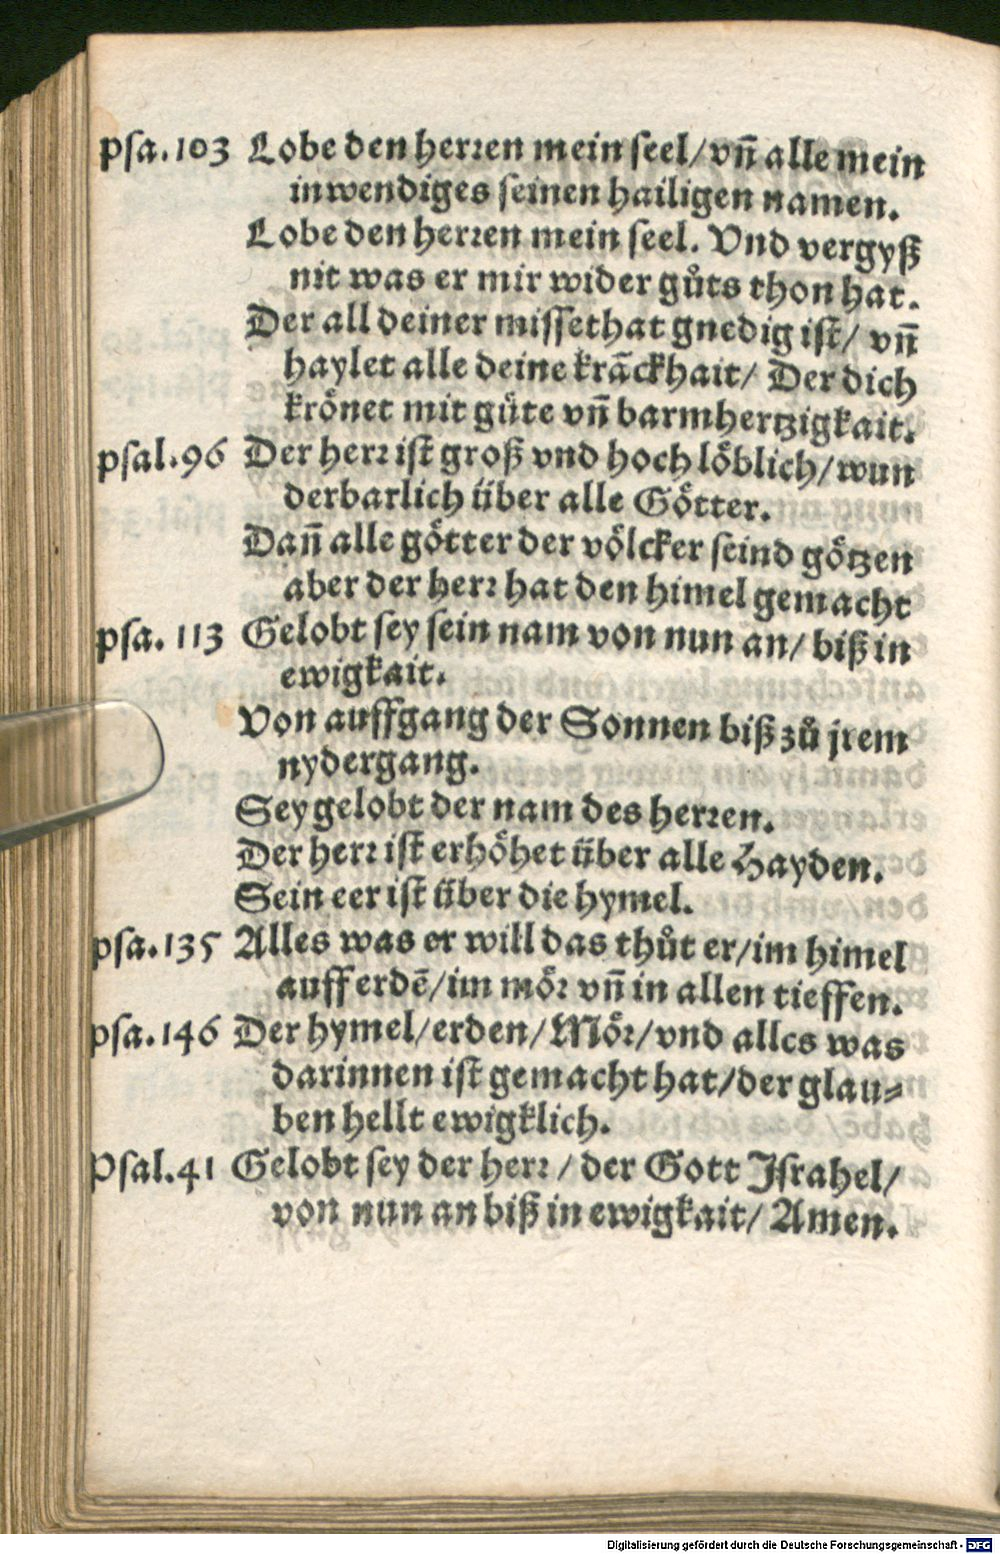 psa.103 Lobe den herren mein seel/vñ alle mein
inwendiges seinen hailigen namen.
Lobe den herren mein seel. Vnd vergyß
nit was er mir wider gůts thon hat.
Der all deiner missethat gnedig ist/ vñ
haylet alle deine krãckhait/ Der dich
krönet mit güte vñ barmhertzigkait.
psal.96 Der herr ist groß vnd hoch löblich/wun
derbarlich über alle Götter.
Dañ alle götter der völcker seind götzen
aber der herr hat den himel gemacht
psa. 113 Gelobt sey sein nam von nun an/ biß in
ewigkait.
Von auffgang der Sonnen biß zů jrem
nydergang.
Sey gelobt der nam des herren.
Der herr ist erhöhet über alle Hayden.
Sein eer ist über die hymel.
psa.135 Alles was er will das thůt er/im himel
auff erdẽ/im mör vñ in allen tieffen.
psa.146 Der hymel/erden/Mör/vnd alles was
darinnen ist gemacht hat/der glau⸗
ben hellt ewigklich.
Psal.41 Gelobt sey der herr / der Gott Israhel/
von nun an biß in ewigkait/ Amen.
Digitalisierung gefördert durch die Deutsche Forschungsgemeinschaft - DFG